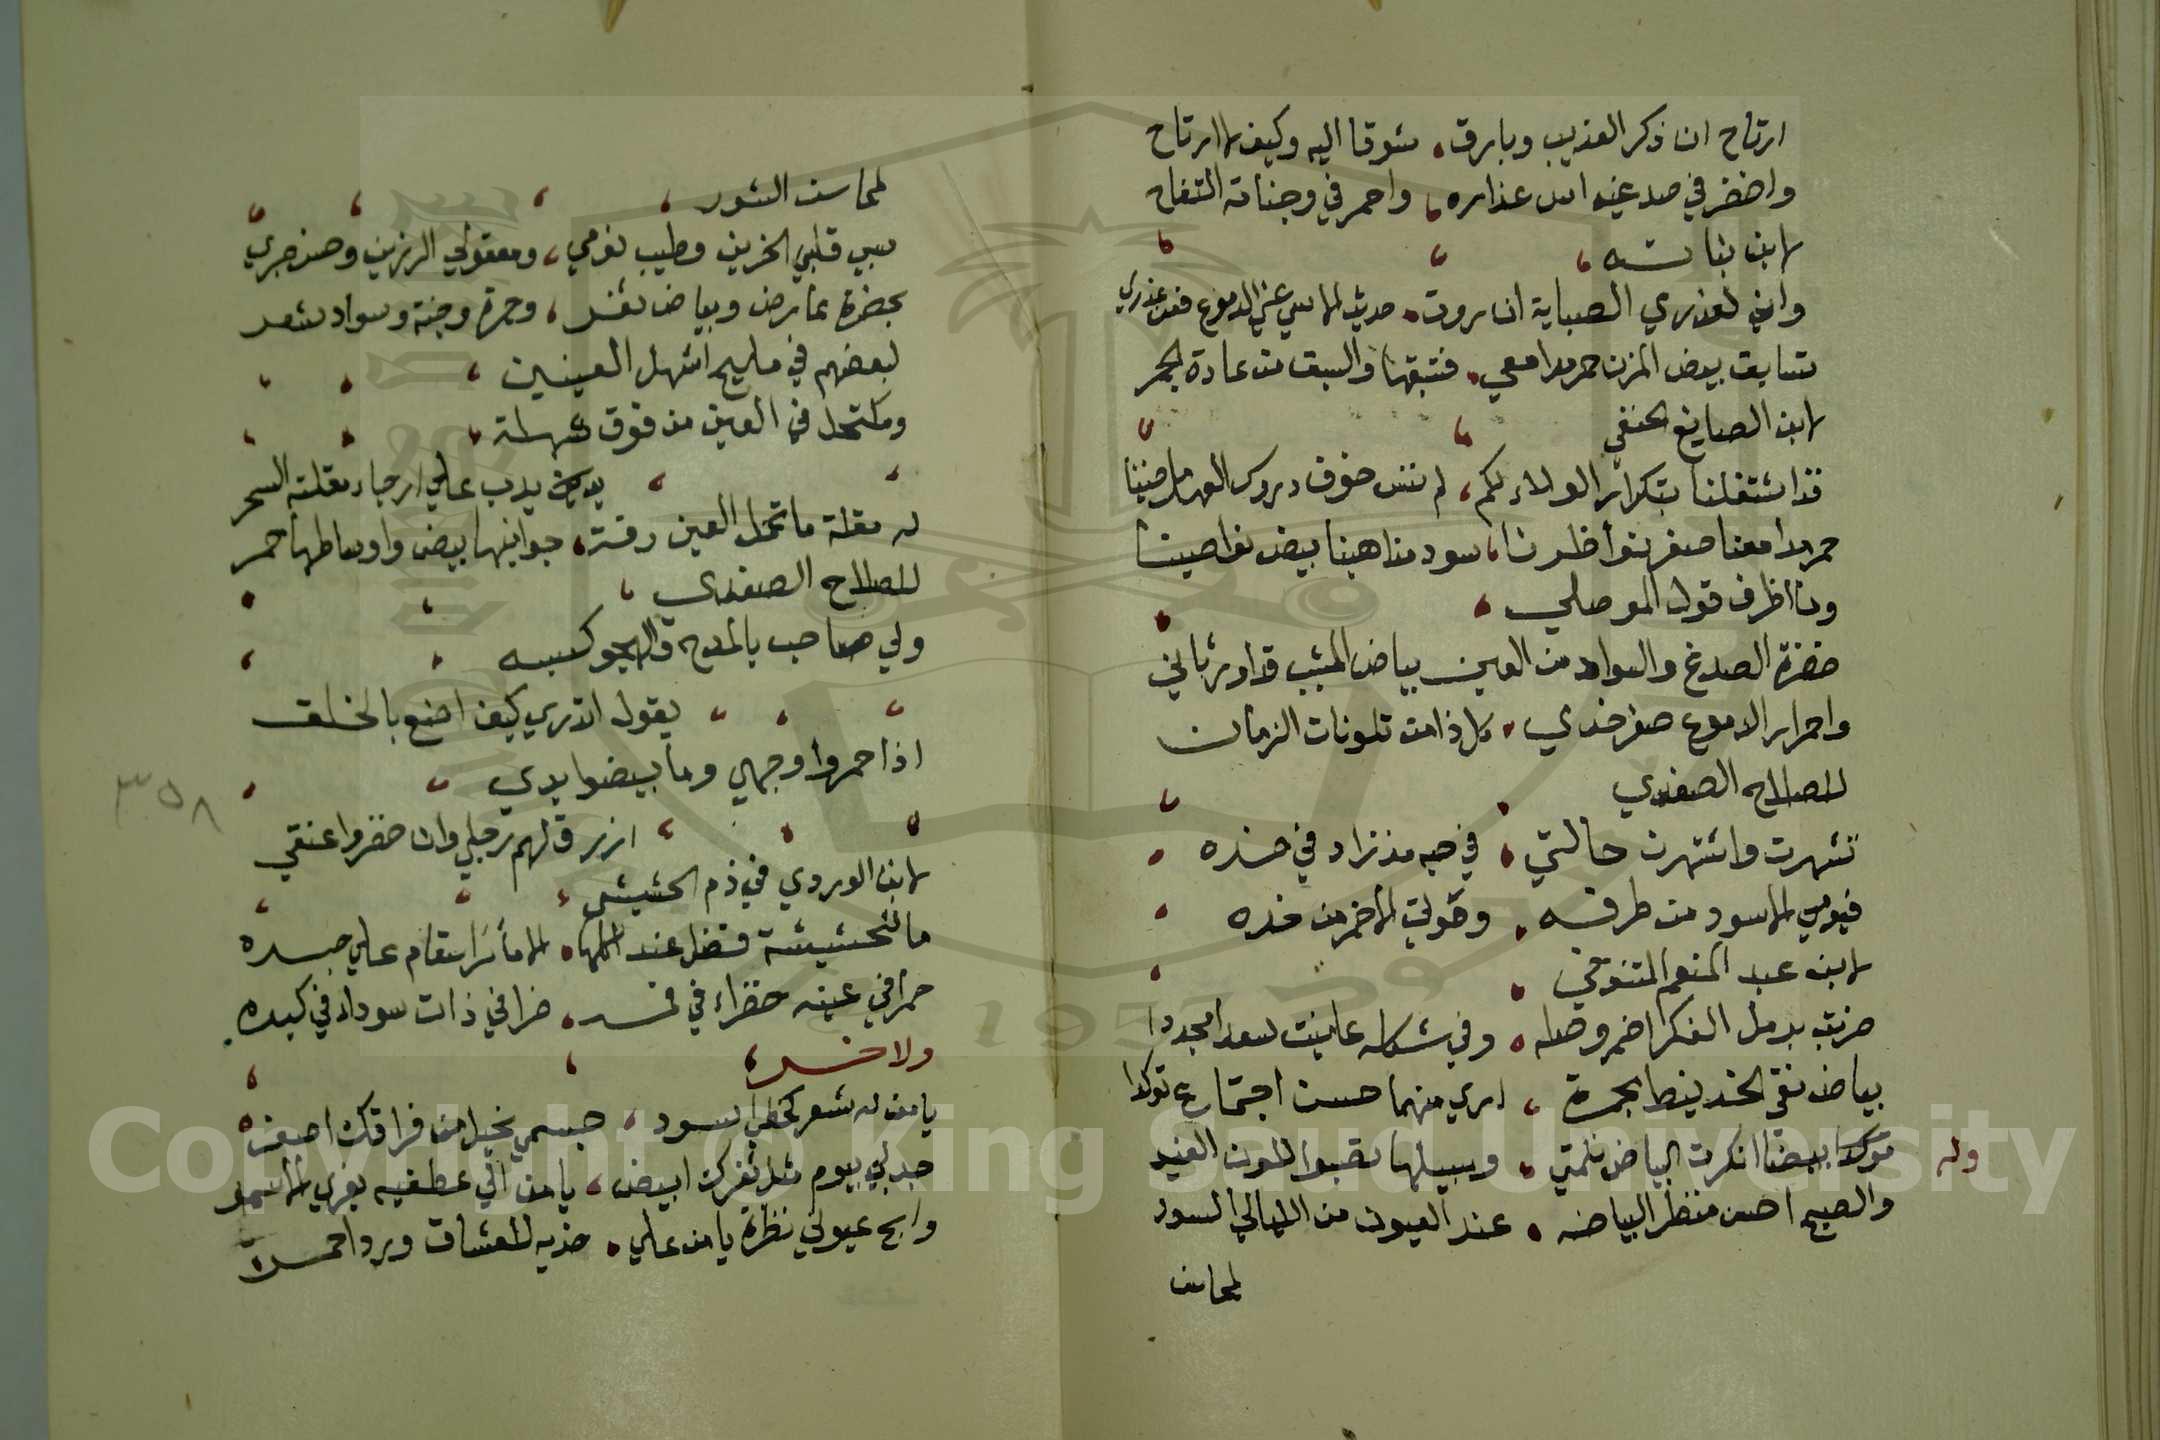 ارتاح ان ذكر العذيب وبارق، شوقا اليه وكيف لا ارتاح
واخضر في صدغيه اس عذاره، واحمر في وجناته التفاح
لابن نباته
واني لعذري الصبابة ان روت، حديث الاسي عني الدموع فعن عذري
تسابق بيض المزن حمر مدامعي، فتسبقها والسبق من عادة الحمر
لابن الصايغ الحنفي
قد اشتغلنا بتكرار الولاء لكم، لم ننس خوف دروس العهد ماضينا
حمر مدامعنا صفر نواظرنا، سود مذاهبنا بيض نواصينا
وما اظرف قول الموصلي
خضرة الصدغ والسواد من العين بياض المشيب قد اورثاني
واحمرار الدموع صفر خدي، كل ذا من تلونات الزمان
للصلاح الصفدي
تشهرت واشتهرت حالتي، في حبه مذ زاد في صده
فيومي الاسود من طرفه، وموتي الاحمر من خده
لابن عبد المنعم التنوخي
ضربت برمل الفكر اضمر وصله، وفي شكله عاينت سعدا مجددا
بياض نقي الخد نيط بحمرة، اري منهما حسن اجتماع تولدا
وله
انكرت البياض بلمتي، العيد
والصبح احسن منظر البياضه، عند العيون من الليالي السود
لمحاسن
لمحاسن الشور
سبي قلبي الحزين وطيب نومي، ومعقولي الرزين وصن صبري
بخضرة عارض وبياض ثغر، وحمرة وجنة وسواد شعر
لبعضهم في مليح اشهل العينين
ومكتحل في العين من فوق شهلة
يدب علي ارجاء مقلته السحر
له مقلة ما تحمل العين رقة، جوانبها بيض واوساطها حمر
للصلاح الصفدي
ولي صاحب بالمدح والهجو كسبه
يقول اتدري كيف اصنع بالخلق
اذا حمروا وجهي وما بيضوا يدي
ازرقهم رجلي وان خضروا عنقي
لابن الوردي في ذم الحشيش
ما للحشيشة فضل عند اكلها، لاما تراستقام علي جسده
حمرا في عينه خضراء في فمه، صفرا في ذات سوداء في كبده
ولاخر
يا من له شعر كحظي اسود، جسمي نحيل من فراقك اصفر
جد لي بيوم مثل ثغرك ابيض، يا من الي عطفيه يعزي الاسمر
وابح عيوني نظرة يا من علي، خديه للعشاق ورد احمر
٣٥٨
Copyright © King Saud University
1957